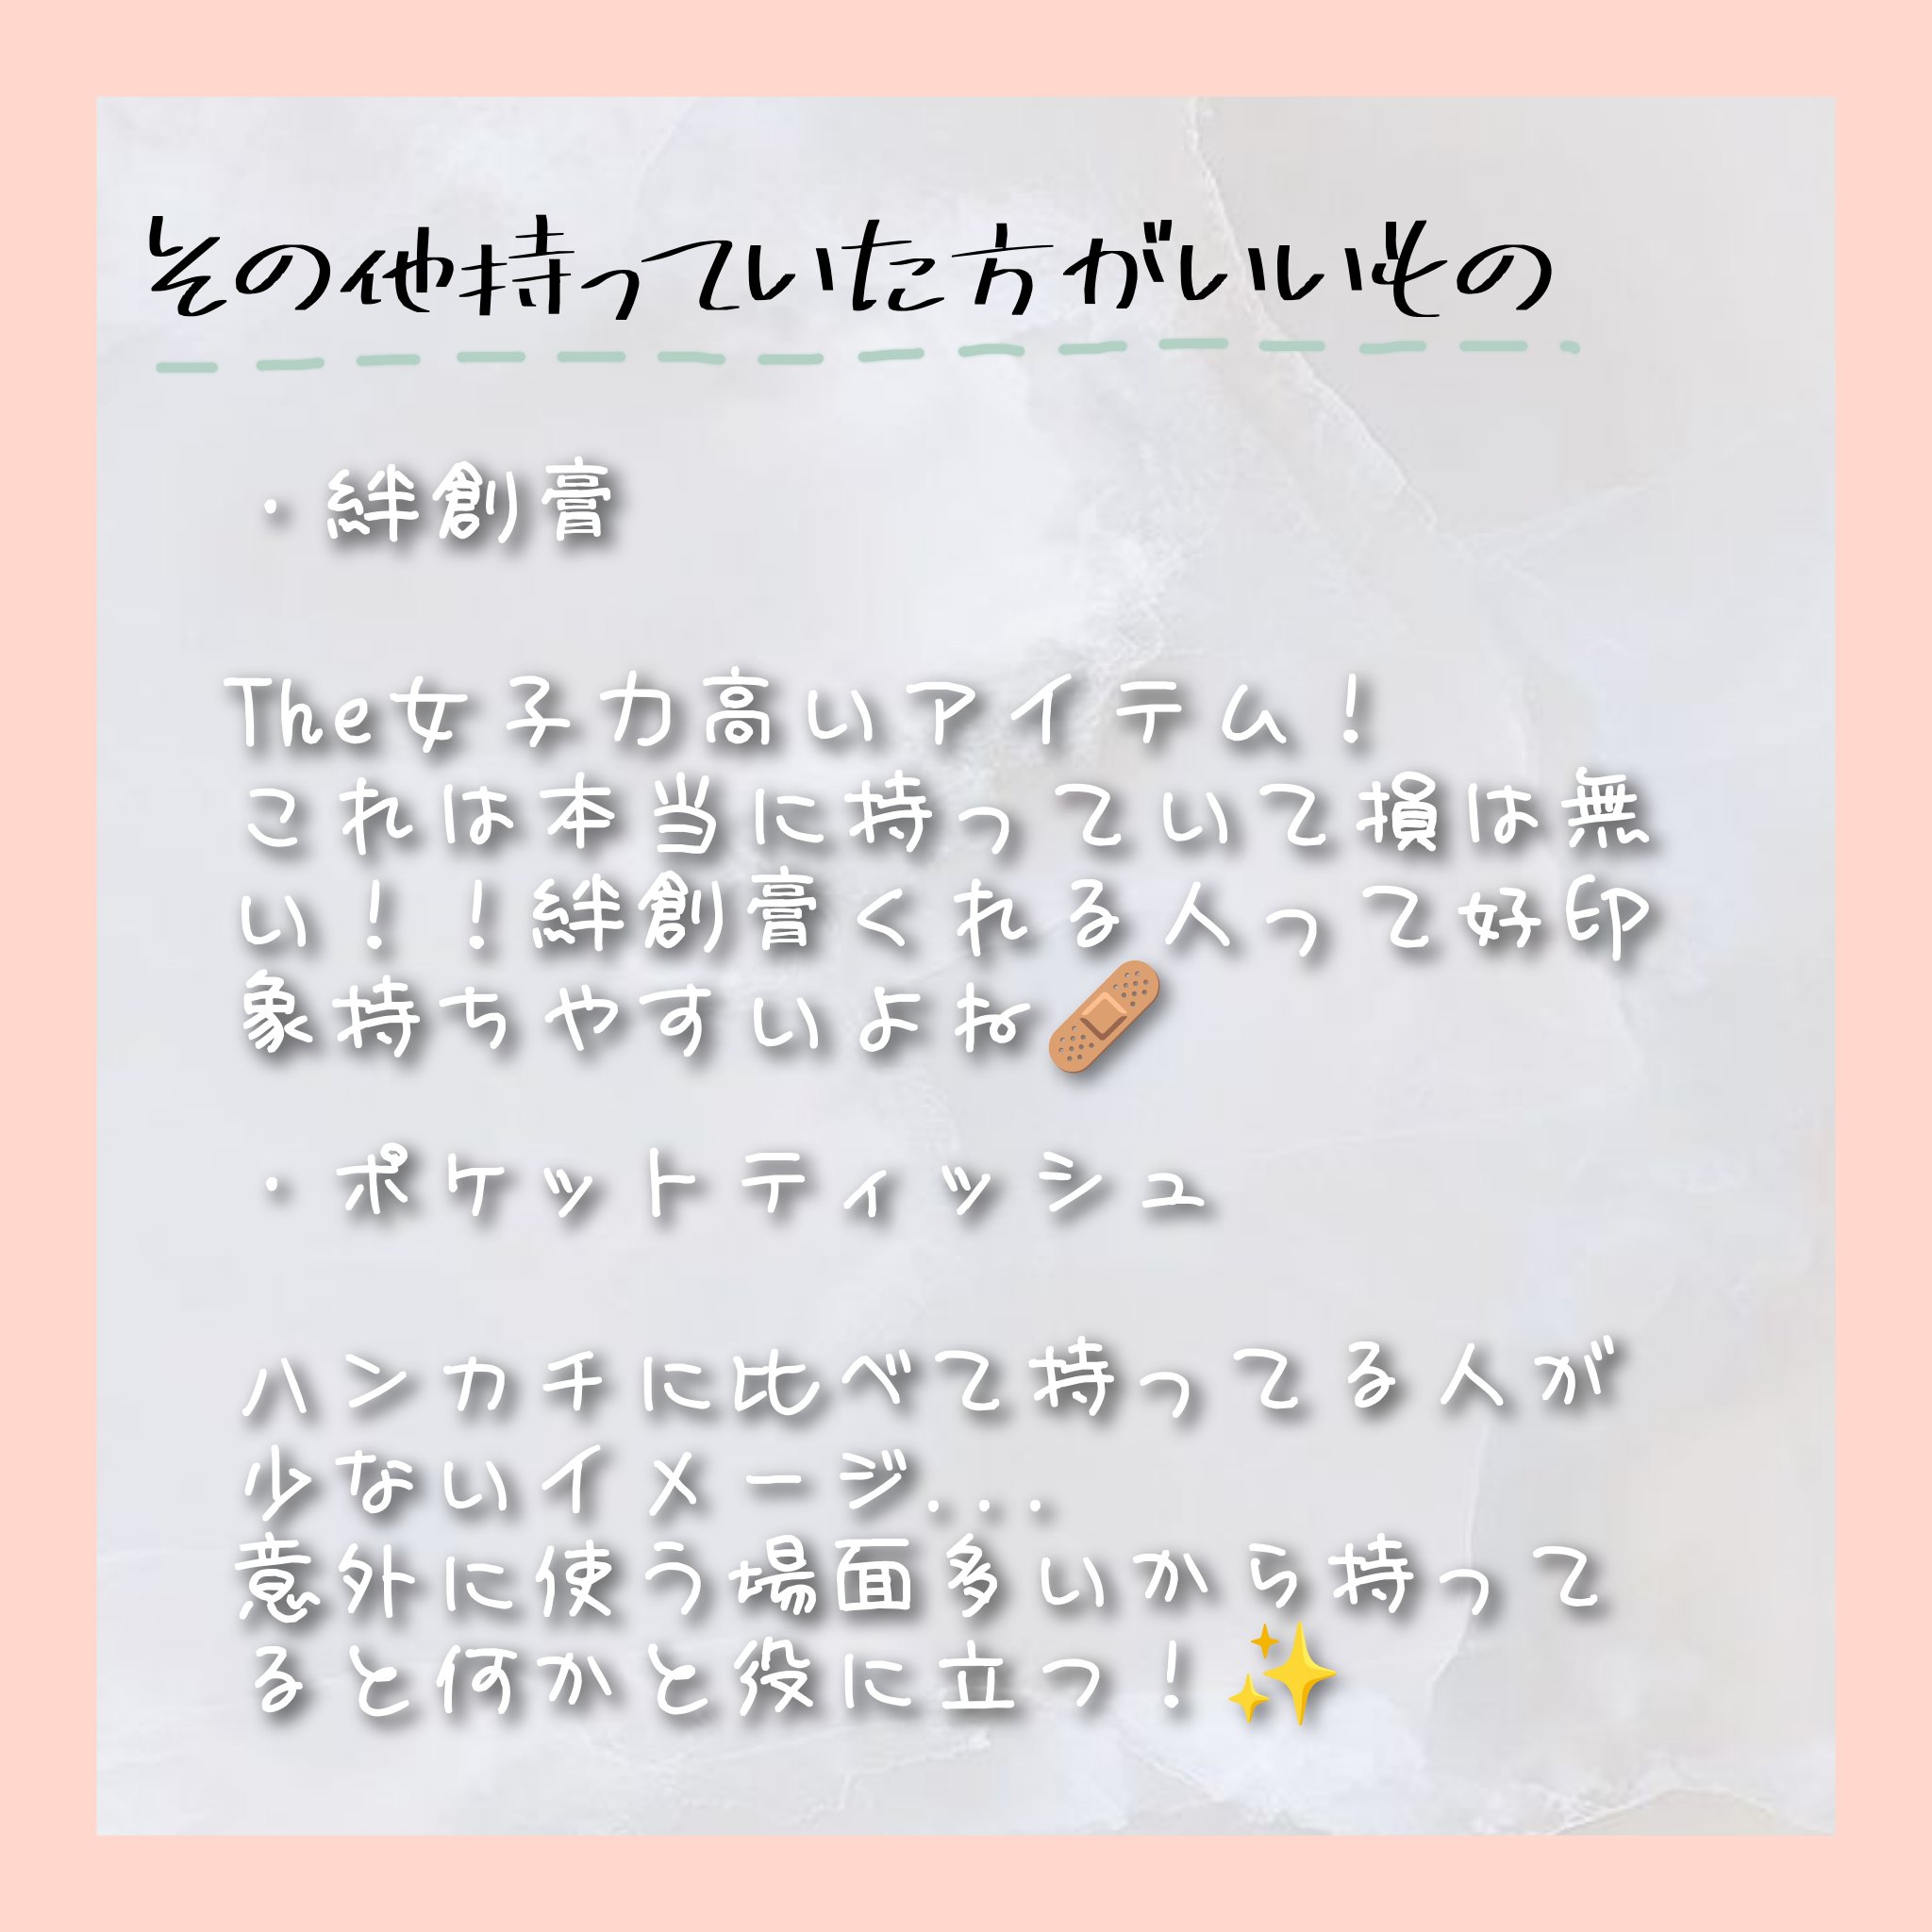 その他持っていた方がいいもの
・絆創膏
The女子力高いアイテム！
これは本当に持っていて損は無
い！！絆創膏くれる人って好印
象持ちやすいよね🩹
・ポケットティッシュ
ハンカチに比べて持ってる人が
少ないイメージ...
意外に使う場面多いから持って
ると何かと役に立つ！✨